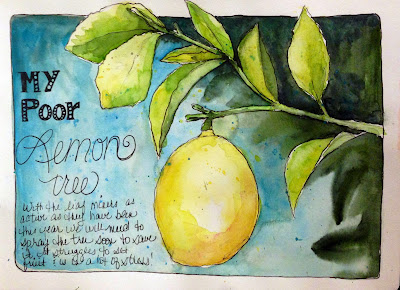 MY
Poor
Lemon
tree
With the leaf miners as
active as they have been
this year we will need to
spray the tree soon to save
it. It struggles to set
fruit & is in a lot of stress!